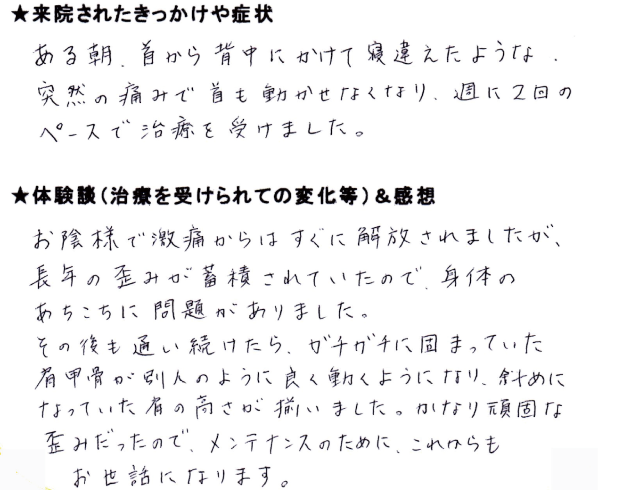 ★来院されたきっかけや症状
ある朝、首から背中にかけて寝違えたような、
突然の痛みで首も動かせなくなり、週に2回の
ペースで治療を受けました。
★体験談(治療を受けられての変化等)&感想
お陰様で激痛からはすぐに解放されましたが、
長年の歪みが蓄積されていたので、身体の
あちこちに問題がありました。
その後も通い続けたら、ガチガチに固まっていた
肩甲骨が別人のように良く動くようになり、斜めに
なっていた肩の高さが揃いました。かなり頑固な
歪みだったので、メンテナンスのために、これからも
お世話になります。